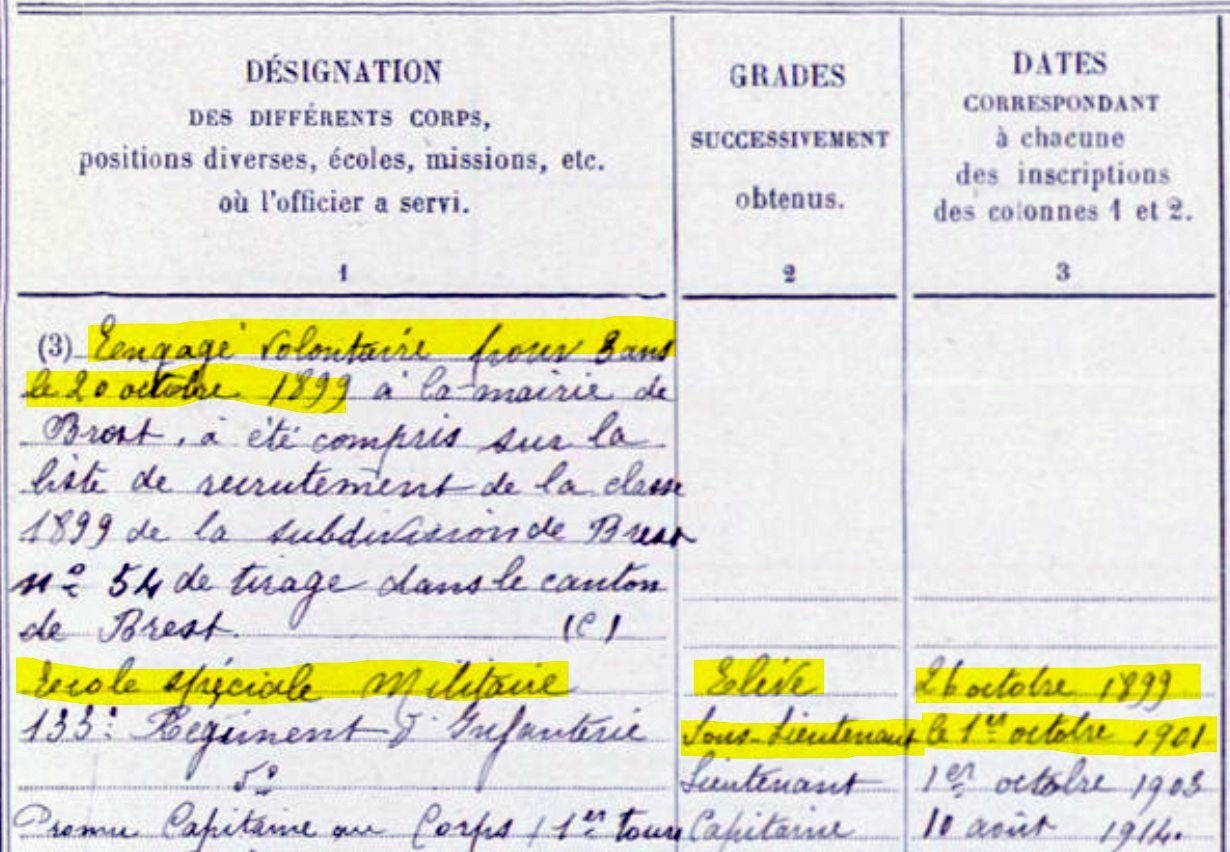 DÉSIGNATION
DES DIFFÉRENTS CORPS,
positions diverses, écoles, missions, etc.
où l'officier a servi.
1
GRADES
SUCCESSIVEMENT
obtenus.
2
DATES
CORRESPONDANT
à chacune
des inscriptions
des colonnes 1 et 2.
3
(3) Engagé volontaire pour 3 ans
le 20 octobre 1899 à la mairie de
Brest, a été compris sur la
liste de recrutement de la classe
1899 de la subdivision de Brest
n° 54 de tirage dans le canton
de Brest. (C)
Ecole spéciale Militaire Elève 26 octobre 1899
133e Régiment d'Infanterie Sous-Lieutenant le 1er octobre 1901
do Lieutenant 1er octobre 1903
Promu Capitaine au Corps (1er tour Capitaine 10 août 1914.